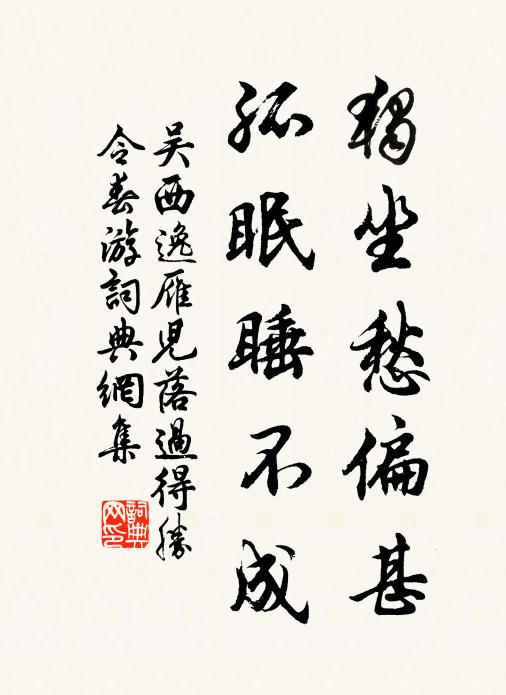 獨坐愁偏甚
孤眠睡不成
吴西逸雁児落過得勝
令春游詞典網集
詞典
网印